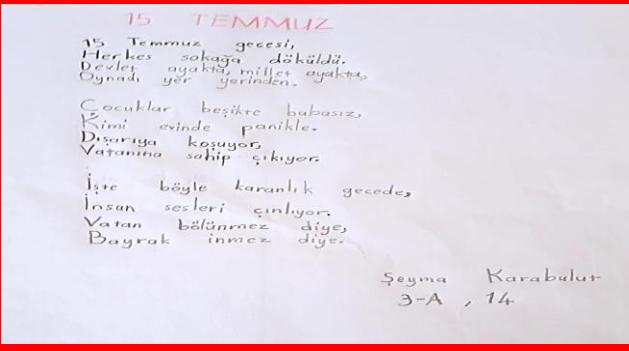 15 TEMMUZ
15 Temmuz gecesi,
Herkes sokağa döküldü.
Devlet ayakta, millet ayakta,
Oynadı yer yerinden.
Çocuklar beşikte babasız,
Kimi evinde panikle.
Dışarıya koşuyor,
Vatanına sahip çıkıyor.
İşte böyle karanlık gecede,
İnsan sesleri çınlıyor.
Vatan bölünmez diye,
Bayrak inmez diye.
Şeyma Karabulut
3-A , 14